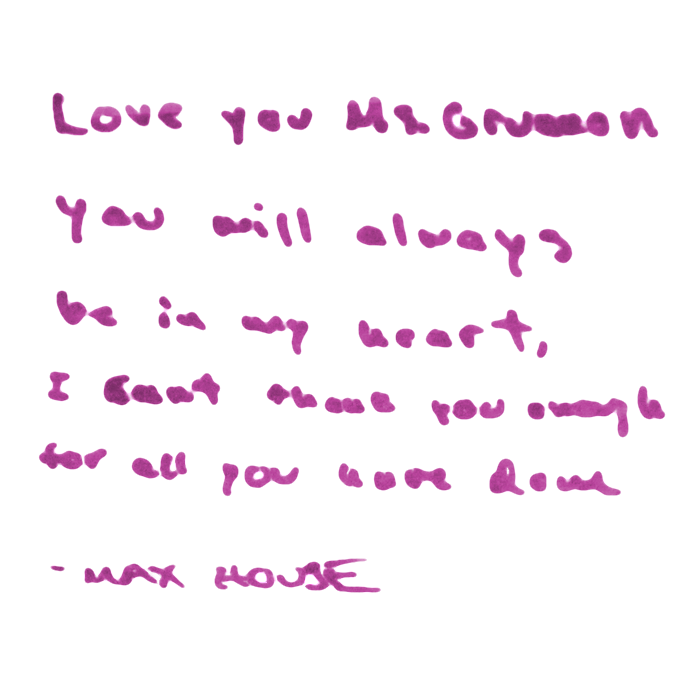 Love you Ms. Gruman
you will always
be in my heart,
I Cant thank you enough
for all you have done
- MAX HOUSE